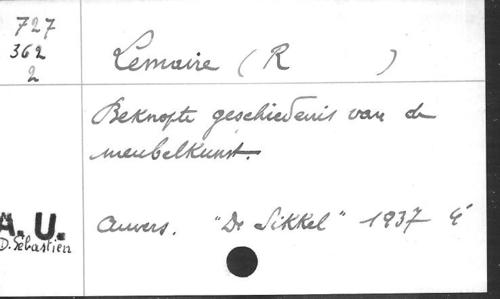 727
362
2
Lemaire ( R )
Beknopte geschiedenis van de
meubelkunst.
Anvers. "De Sikkel" 1937 4°
A. U.
D. Sébastien